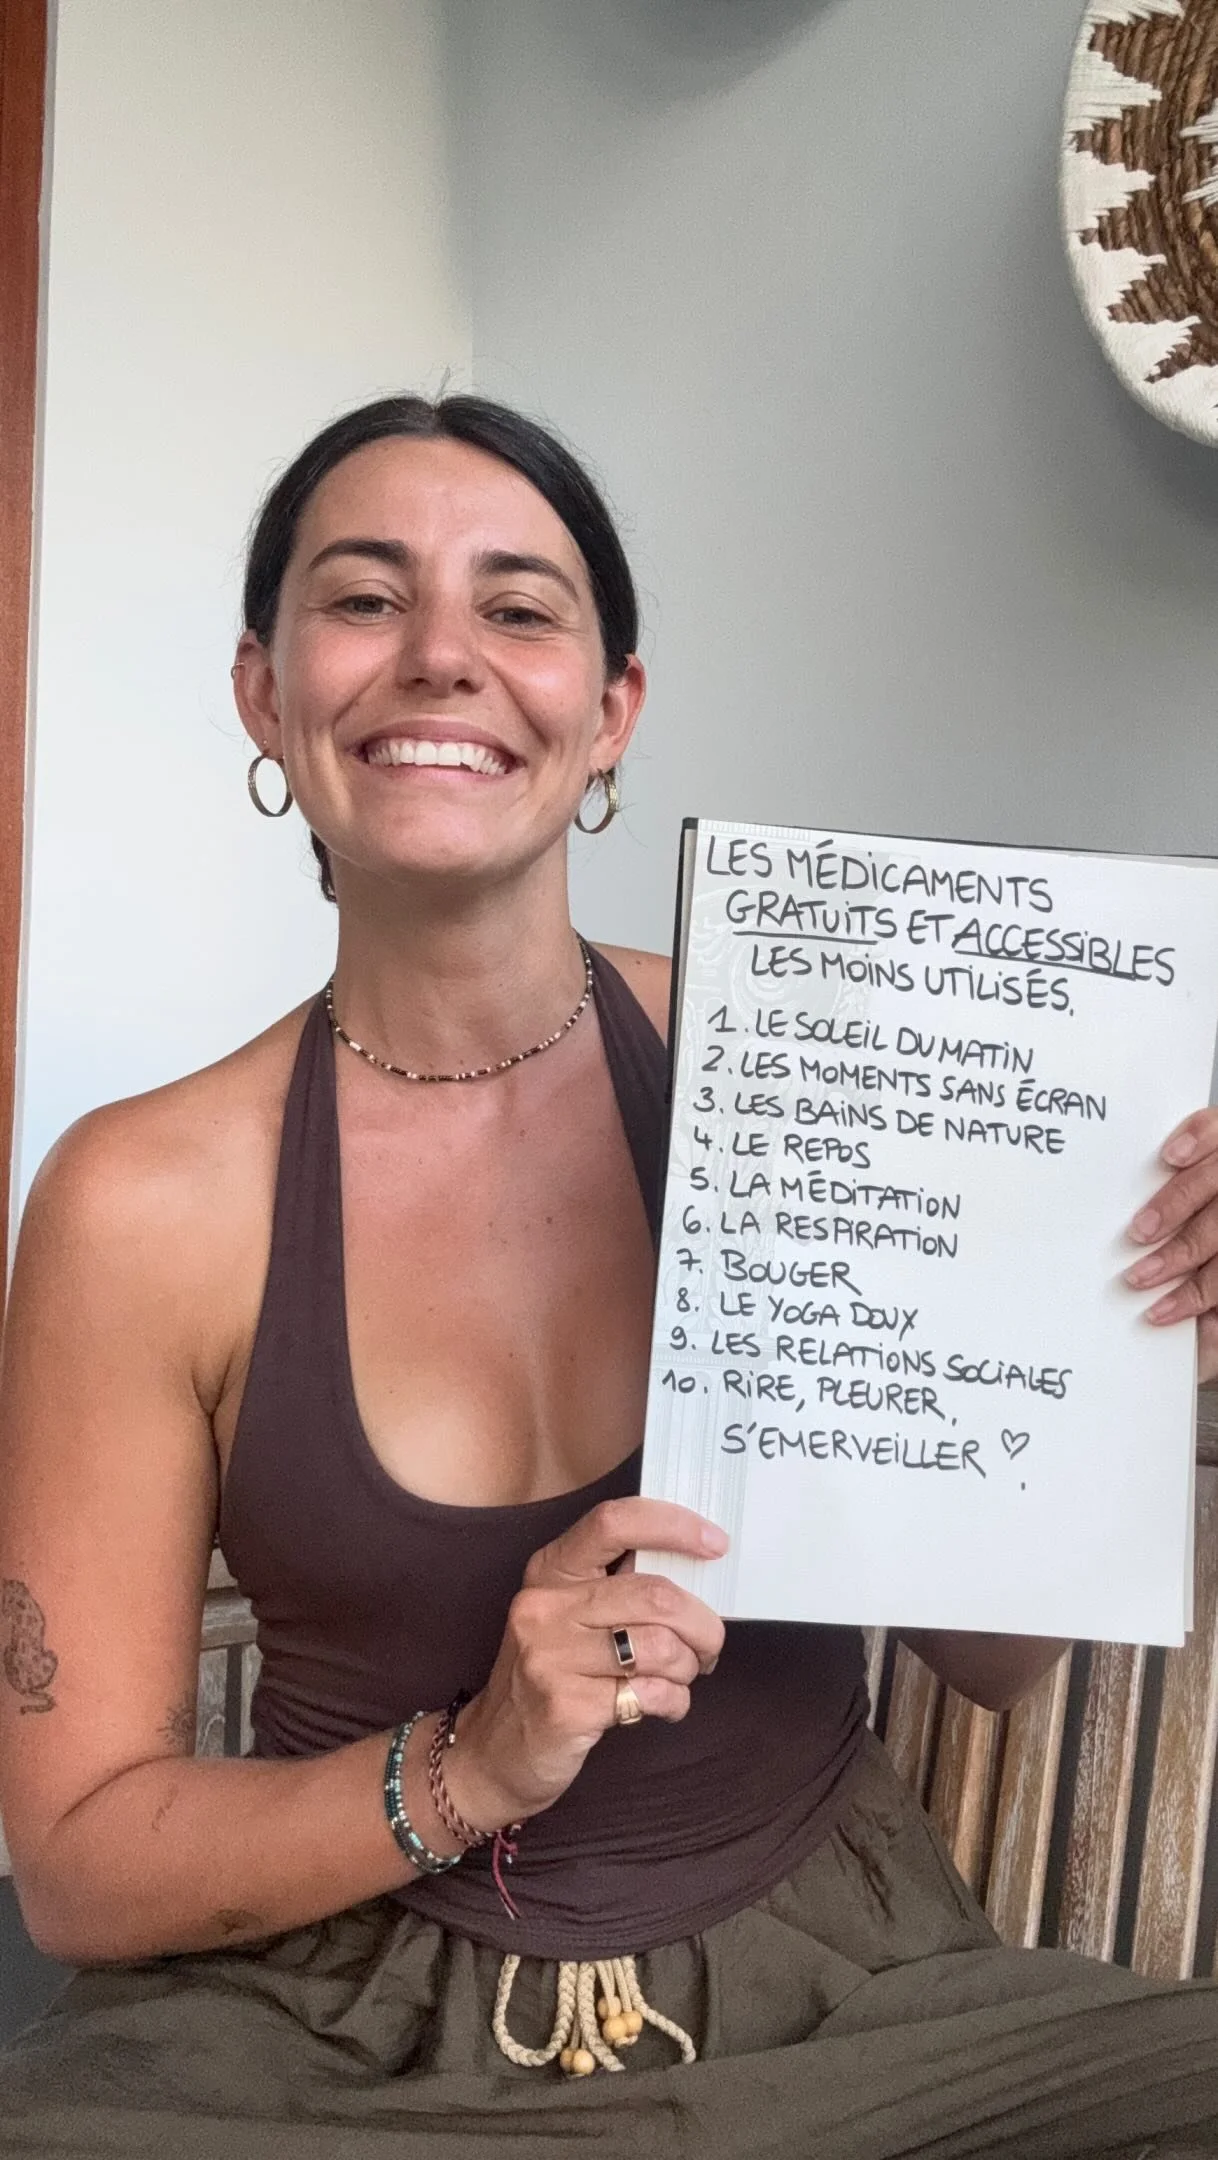 LES MÉDICAMENTS
GRATUITS ET ACCESSIBLES
LES MOINS UTILISÉS.
1. LE SOLEIL DU MATIN
2. LES MOMENTS SANS ÉCRAN
3. LES BAINS DE NATURE
4. LE REPOS
5. LA MÉDITATION
6. LA RESPIRATION
7. BOUGER
8. LE YOGA DOUX
9. LES RELATIONS SOCIALES
10. RIRE, PLEURER,
S'EMERVEILLER ♡.